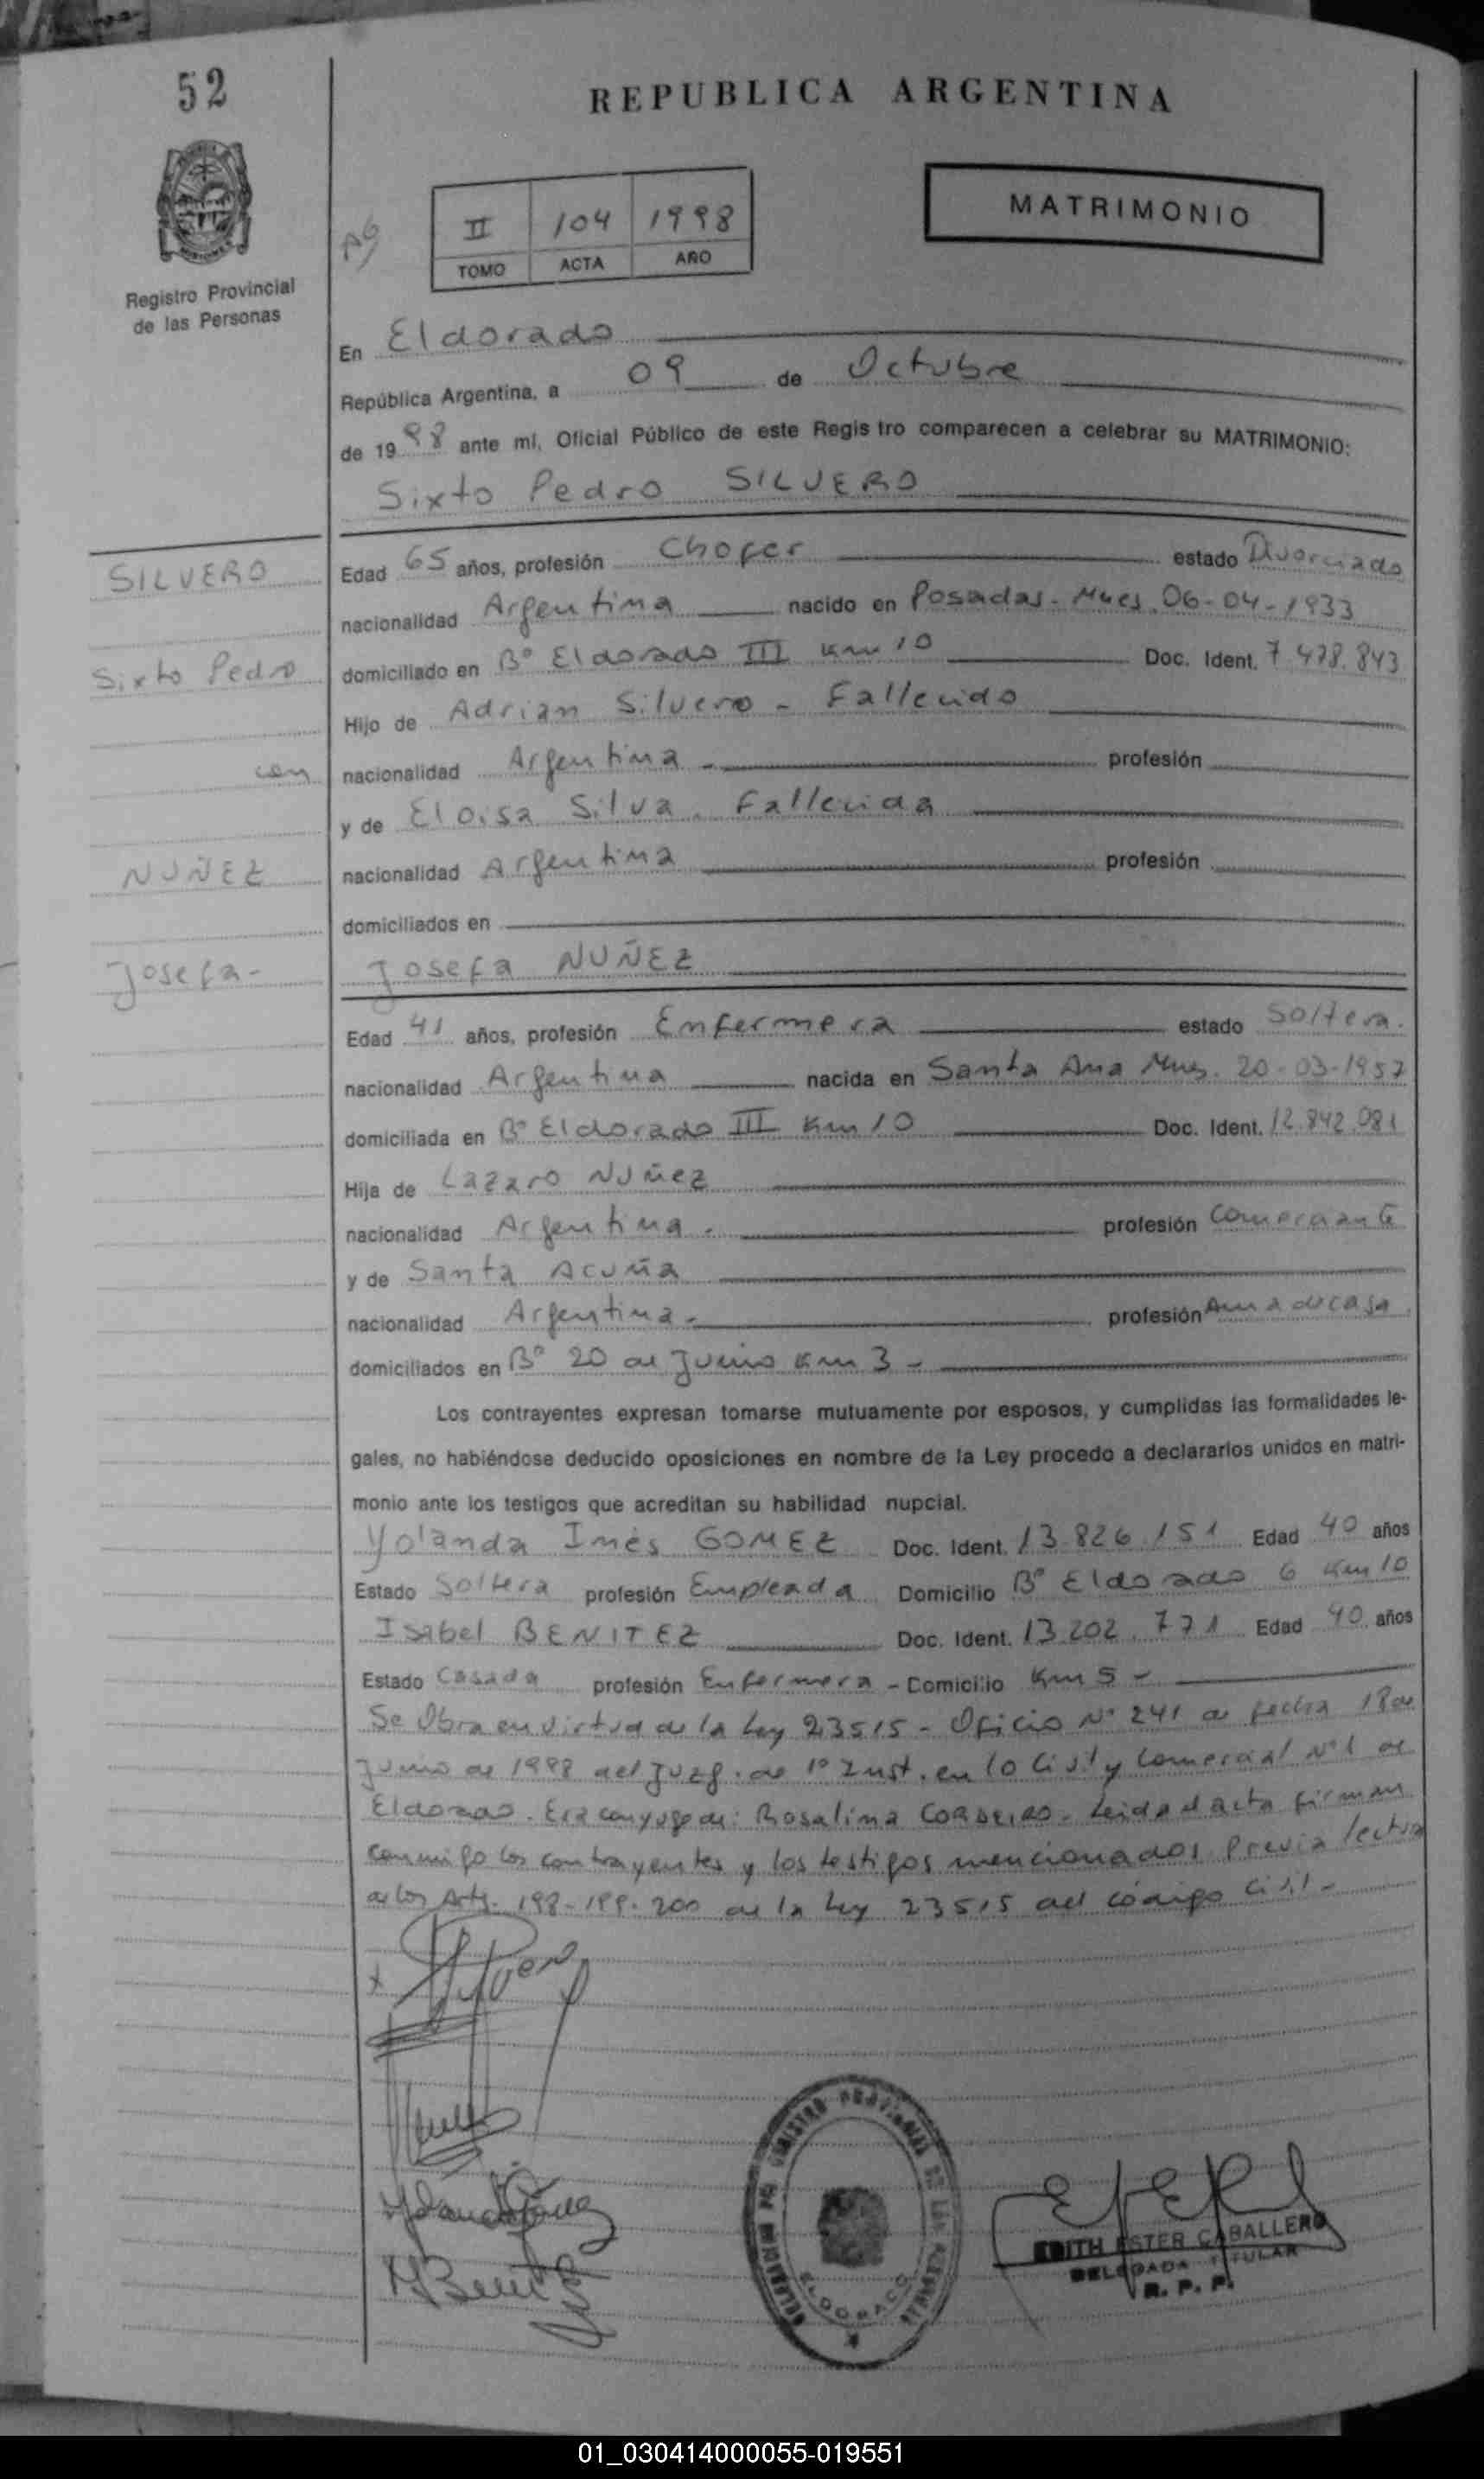 52
REPUBLICA ARGENTINA
Registro Provincial
de las Personas
AG
II 104 1998
TOMO ACTA AÑO
MATRIMONIO
En Eldorado
República Argentina, a 09 de Octubre
de 1998 ante mí, Oficial Público de este Registro comparecen a celebrar su MATRIMONIO:
Sixto Pedro SILVERO
SILVERO
Sixto Pedro
con
NUÑEZ
Josefa-
Edad 65 años, profesión Chofer estado Divorciado
nacionalidad Argentina nacido en Posadas - Mnes. 06-04-1933
domiciliado en Bº Eldorado III Km 10 Doc. Ident. 7.478.843
Hijo de Adrian Silvero - Fallecido
nacionalidad Argentina - profesión
y de Eloisa Silva. Fallecida
nacionalidad Argentina profesión
domiciliados en
Josefa NUÑEZ
Edad 41 años, profesión Enfermera estado Soltera.
nacionalidad Argentina nacida en Santa Ana Mnes. 20-03-1957
domiciliada en Bº Eldorado III Km 10 Doc. Ident. 12.842.081
Hija de Lazaro Nuñez
nacionalidad Argentina. profesión Comerciante
y de Santa Acuña
nacionalidad Argentina. profesión Ama de casa
domiciliados en Bº 20 de Junio Km 3 -
Los contrayentes expresan tomarse mutuamente por esposos, y cumplidas las formalidades le-
gales, no habiéndose deducido oposiciones en nombre de la Ley procedo a declararlos unidos en matri-
monio ante los testigos que acreditan su habilidad nupcial.
Yolanda Inés GOMEZ Doc. Ident. 13.826.151 Edad 40 años
Estado Soltera profesión Empleada Domicilio Bº Eldorado 6 Km 10
Isabel BENITEZ Doc. Ident. 13.202.771 Edad 40 años
Estado Casada profesión Enfermera - Domicilio Km 5 -
Se Obra en virtud de la Ley 23515 - Oficio Nº 241 de fecha 18 de
Junio de 1998 del Juzg. de 1º Inst. en lo Civil y Comercial Nº 1 de
Eldorado. Era conyuge de: Rosalina CORDEIRO. Leida el acta firman
conmigo los contrayentes y los testigos mencionados previa lectura
de los Arts. 198-199-200 de la Ley 23515 del código Civil -
DELEGACION DEL REGISTRO PROVINCIAL DE LAS PERSONAS
ELDORADO
EDITH ESTER CABALLERO
DELEGADA TITULAR
R. P. P.
01_030414000055-019551